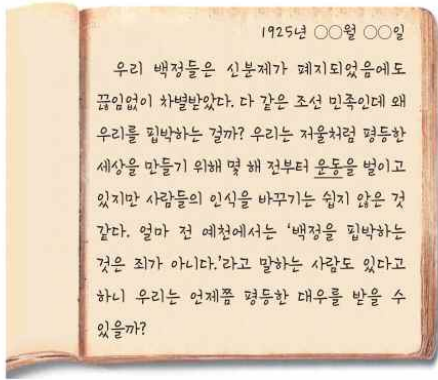 1925년 ○○월 ○○일
우리 백정들은 신분제가 폐지되었음에도
끊임없이 차별받았다. 다 같은 조선 민족인데 왜
우리를 핍박하는 걸까? 우리는 저울처럼 평등한
세상을 만들기 위해 몇 해 전부터 운동을 벌이고
있지만 사람들의 인식을 바꾸기는 쉽지 않은 것
같다. 얼마 전 예천에서는 ‘백정을 핍박하는
것은 죄가 아니다.’라고 말하는 사람도 있다고
하니 우리는 언제쯤 평등한 대우를 받을 수
있을까?